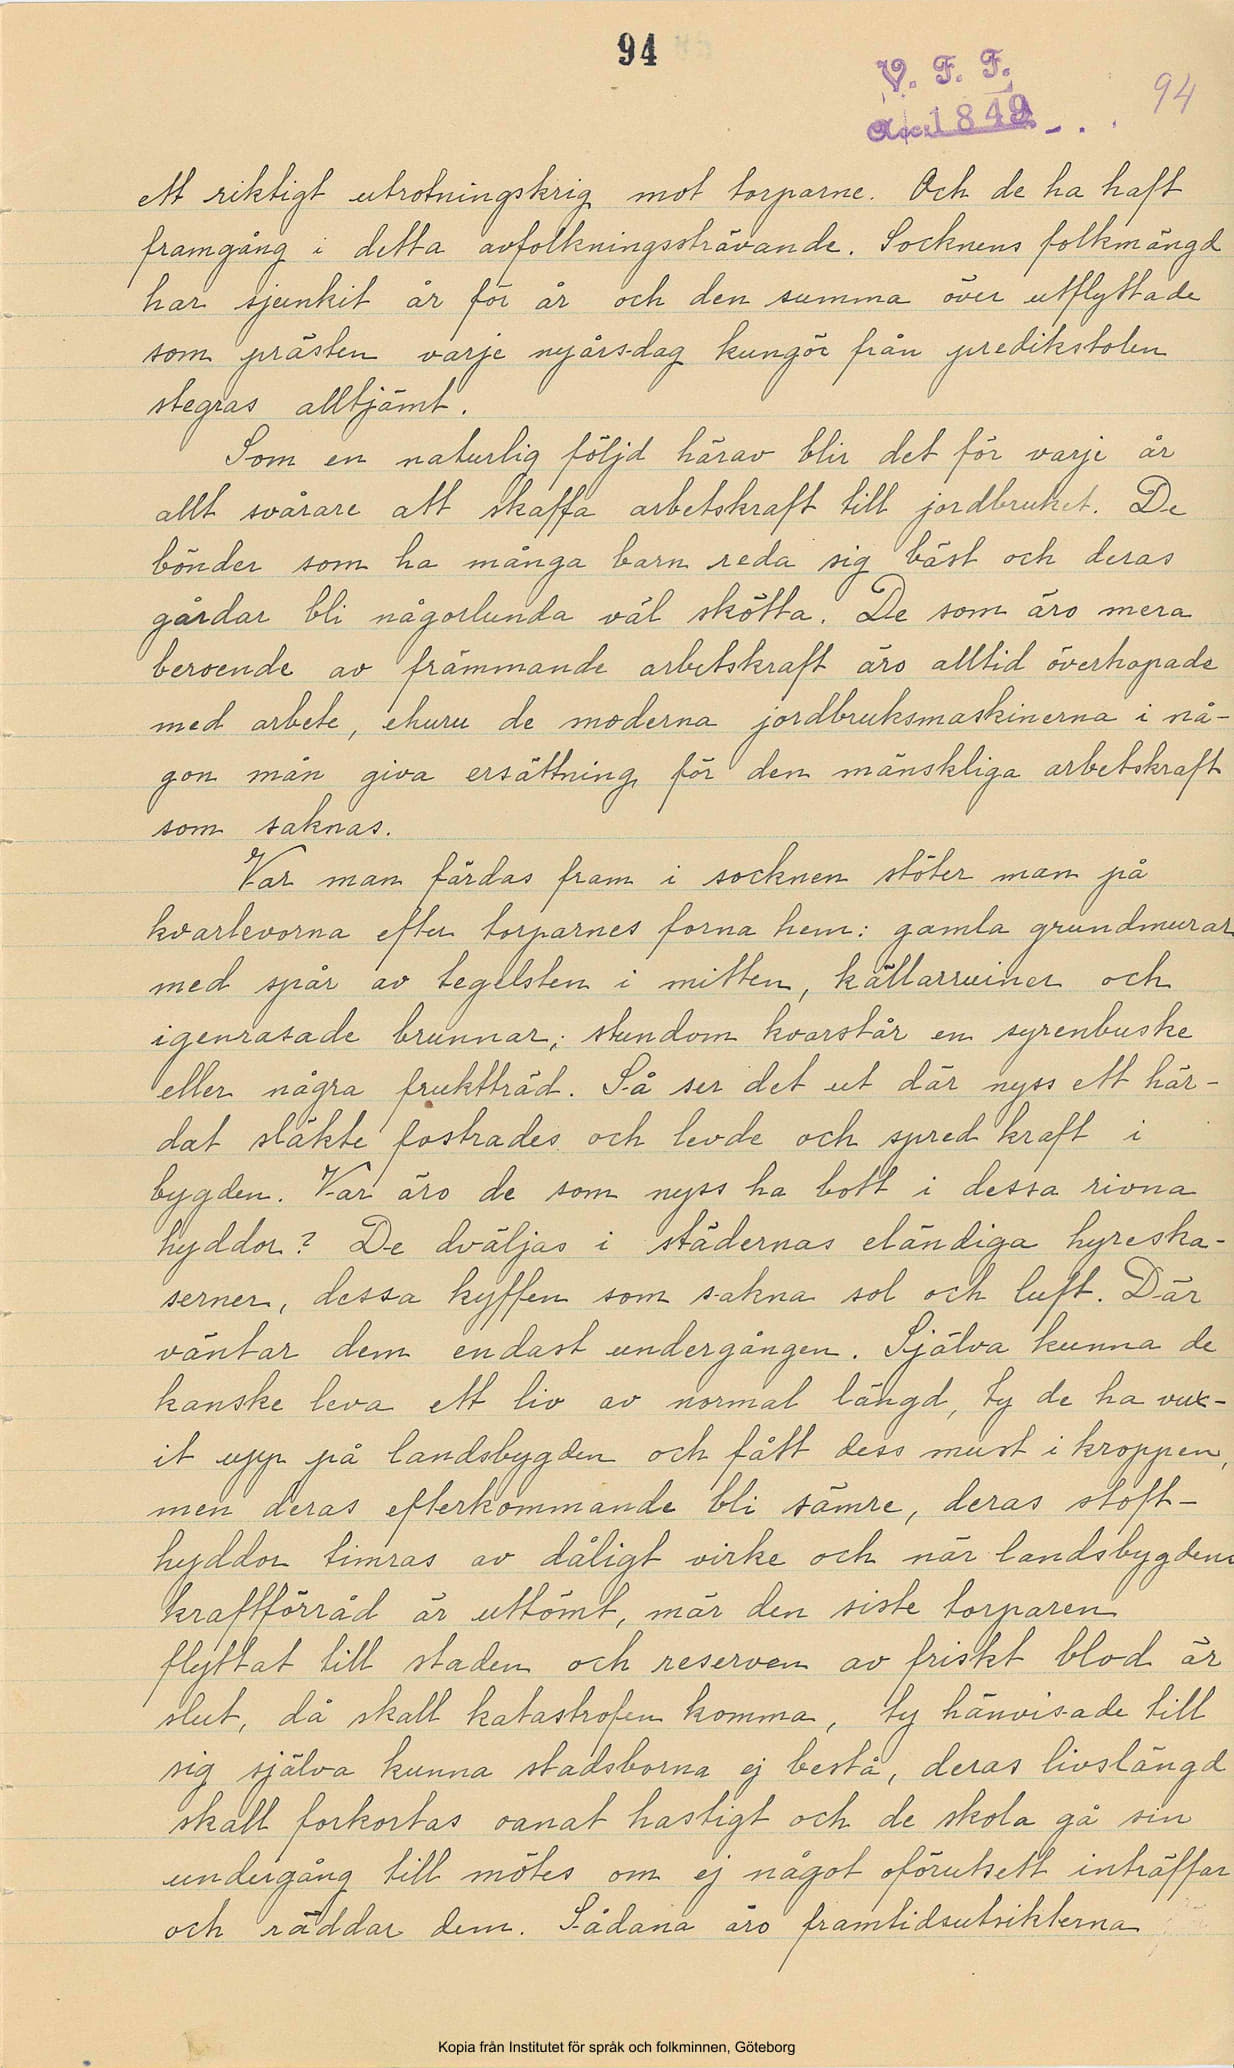 94
V. F. F.
Acc. 1849
94
ett riktigt utrotningskrig mot torparne. Och de ha haft
framgång i detta avfolkningssträvande. Socknens folkmängd
har sjunkit år för år och den summa över utflyttade
som prästen varje nyårsdag kungör från predikstolen
stegras alltjämt.
Som en naturlig följd härav blir det för varje år
allt svårare att skaffa arbetskraft till jordbruket. De
bönder som ha många barn reda sig bäst och deras
gårdar bli någorlunda väl skötta. De som äro mera
beroende av främmande arbetskraft äro alltid överhopade
med arbete, ehuru de moderna jordbruksmaskinerna i nå-
gon mån giva ersättning för den mänskliga arbetskraft
som saknas.
Var man färdas fram i socknen stöter man på
kvarlevorna efter torparnes forna hem: gamla grundmurar
med spår av tegelsten i mitten, källarruiner och
igenrasade brunnar; stundom kvarstår en syrenbuske
eller några fruktträd. Så ser det ut där nyss ett här-
dat släkte fostrades och levde och spred kraft i
bygden. Var äro de som nyss ha bott i dessa rivna
hyddor? De dväljas i städernas eländiga hyreska-
serner, dessa kyffen som sakna sol och luft. Där
väntar dem endast undergången. Själva kunna de
kanske leva ett liv av normal längd, ty de ha vux-
it upp på landsbygden och fått dess must i kroppen,
men deras efterkommande bli sämre, deras stoft-
hyddor timras av dåligt virke och när landsbygdens
kraftförråd är uttömt, när den siste torparen
flyttat till staden och reserven av friskt blod är
slut, då skall katastrofen komma, ty hänvisade till
sig själva kunna stadsborna ej bestå, deras livslängd
skall forkortas oanat hastigt och de skola gå sin
undergång till mötes om ej något oförutsett inträffar
och räddar dem. Sådana äro framtidsutsikterna
Kopia från Institutet för språk och folkminnen, Göteborg